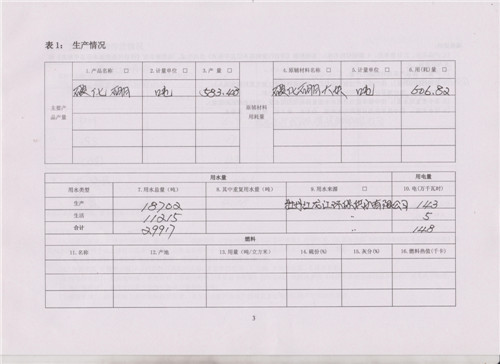 表1： 生产情况
主要产品产量 1.产品名称 □ 2.计量单位 □ 3.产 量 □ 原辅材料用耗量 4.原辅材料名称 □ 5.计量单位 □ 6.用(耗)量 □
碳化硼 吨 碳化硼 吨 606.82
用水量 用电量
用水类型 7.用水总量（吨） 8.其中重复用水量（吨） 9.用水来源 □ 10.电(万千瓦时)
生产 18702 江环保 有限公司 143
生活 11215 - 5
合计 29917 - 148
燃料
11.名称 12.产地 13.用量（吨/立方米） 14.硫份(%) 15.灰分(%) 16.燃料热值(千卡)
3